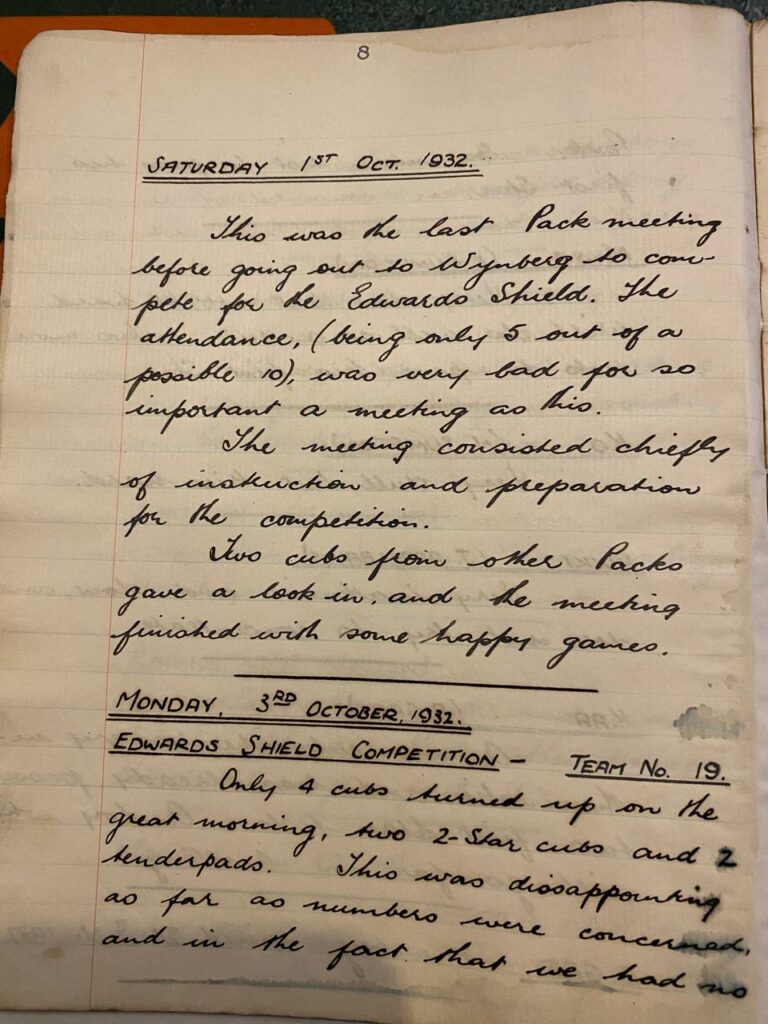 8
SATURDAY 1ST OCT. 1932.
This was the last Pack meeting
before going out to Wynberg to com-
pete for the Edwards Shield. The
attendance, (being only 5 out of a
possible 10), was very bad for so
important a meeting as this.
The meeting consisted chiefly
of instruction and preparation
for the competition.
Two cubs from other Packs
gave a look in, and the meeting
finished with some happy games.
MONDAY, 3RD OCTOBER, 1932.
EDWARDS SHIELD COMPETITION - TEAM No. 19.
Only 4 cubs turned up on the
great morning, two 2-Star cubs and 2
tenderpads. This was dissappointing
as far as numbers were concerned,
and in the fact that we had no